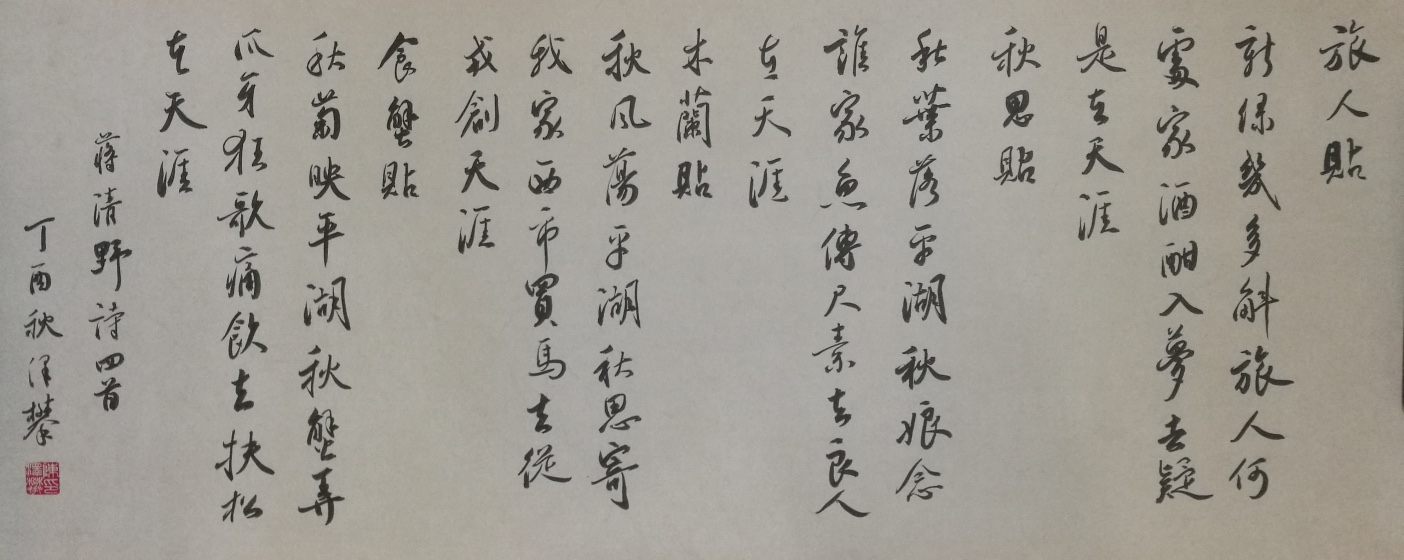 旅人貼
新綠幾多斛旅人何
處家酒酣入夢去疑
是在天涯
秋思貼
秋葉落平湖秋娘念
誰家魚傳尺素去良人
在天涯
木蘭貼
秋風蕩平湖秋思寄
我家西市買馬去從
戎創天涯
食蟹貼
秋菊映平湖秋蟹弄
爪牙狂歌痛飲去扶松
在天涯
蔣清野詩四首
丁酉秋澤攀